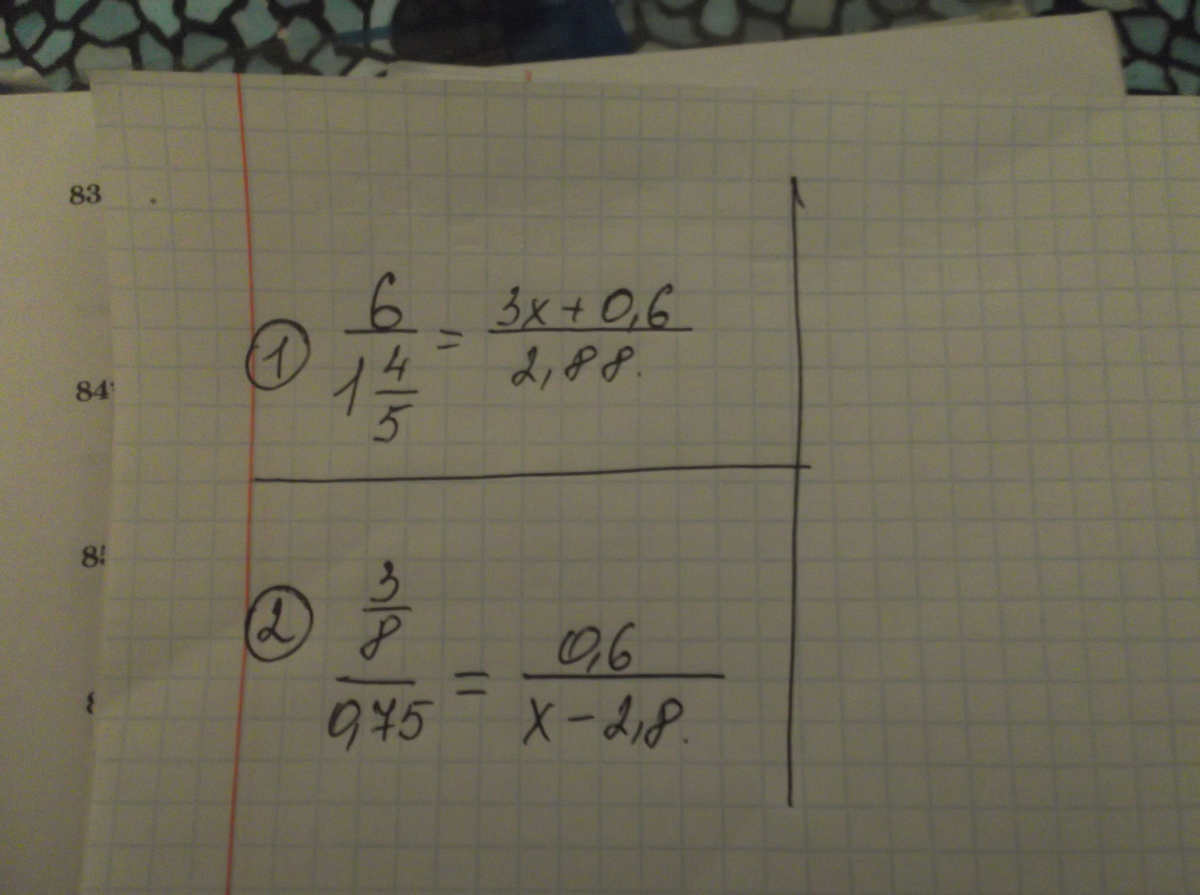 83
84
① 6 / 1 4/5 = 3x + 0,6 / 2,88.
② 3/8 / 0,75 = 0,6 / x - 2,8.